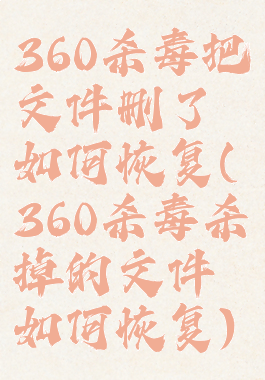 360杀毒把
文件删了
如何恢复(
360杀毒杀
掉的文件
如何恢复)